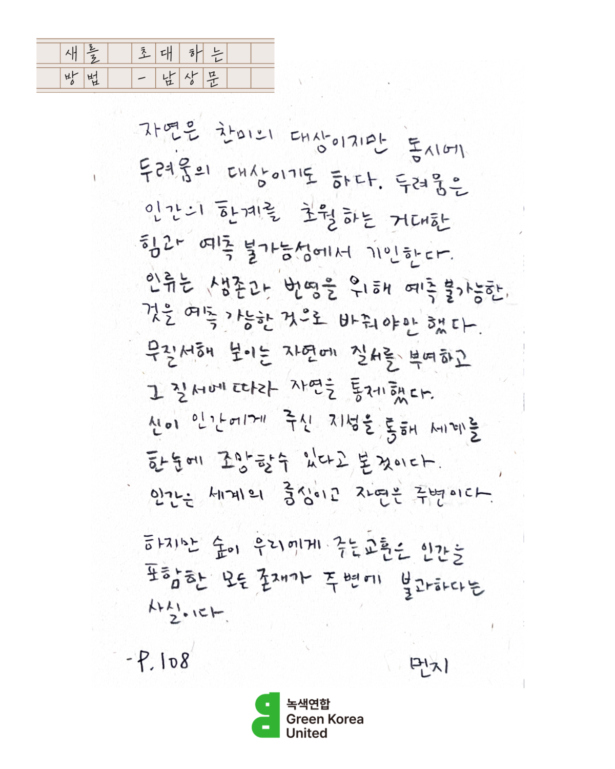 새를 초대하는
방법 - 남상문
자연은 찬미의 대상이지만 동시에
두려움의 대상이기도 하다. 두려움은
인간의 한계를 초월하는 거대한
힘과 예측 불가능성에서 기인한다.
인류는 생존과 번영을 위해 예측 불가능한,
것을 예측 가능한 것으로 바꿔야만 했다.
무질서해 보이는 자연에 질서를 부여하고
그 질서에 따라 자연을 통제했다.
신이 인간에게 주신 지성을 통해 세계를
한눈에 조망할 수 있다고 본 것이다.
인간은 세계의 중심이고 자연은 주변이다.
하지만 숲이 우리에게 주는 교훈은 인간을
포함한 모든 존재가 주변에 불과하다는
사실이다.
-P.108 먼지
녹색연합
Green Korea
United